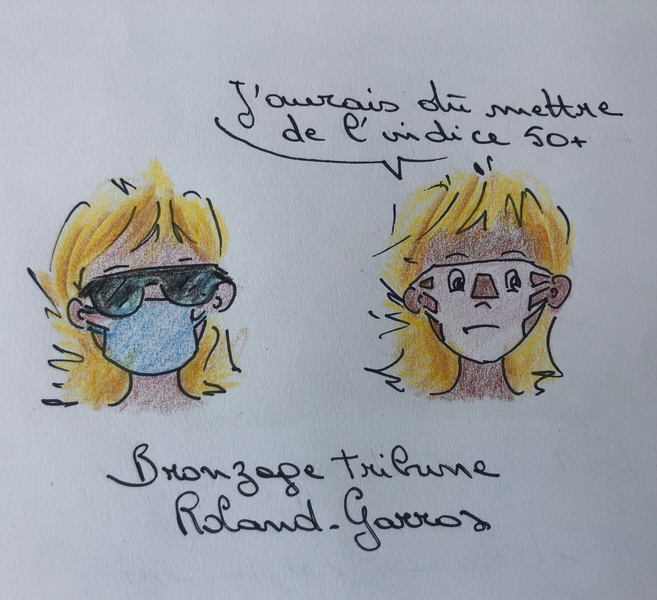 J'aurais dû mettre
de l'indice 50+
Bronzage tribune
Roland-Garros